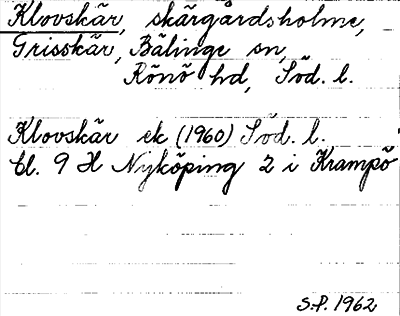 Klovskär, skärgårdsholme,
Grisskär, Bälinge sn,
Rönö hd, Söd. l.
Klovskär ek (1960) Söd. l.
bl. 9 H Nyköping 2 i Krampö
S.P. 1962